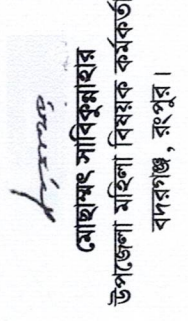 মোছাম্মৎ সাবিকুন্নাহার
উপজেলা মহিলা বিষয়ক কর্মকর্তা
বদরগঞ্জ, রংপুর।